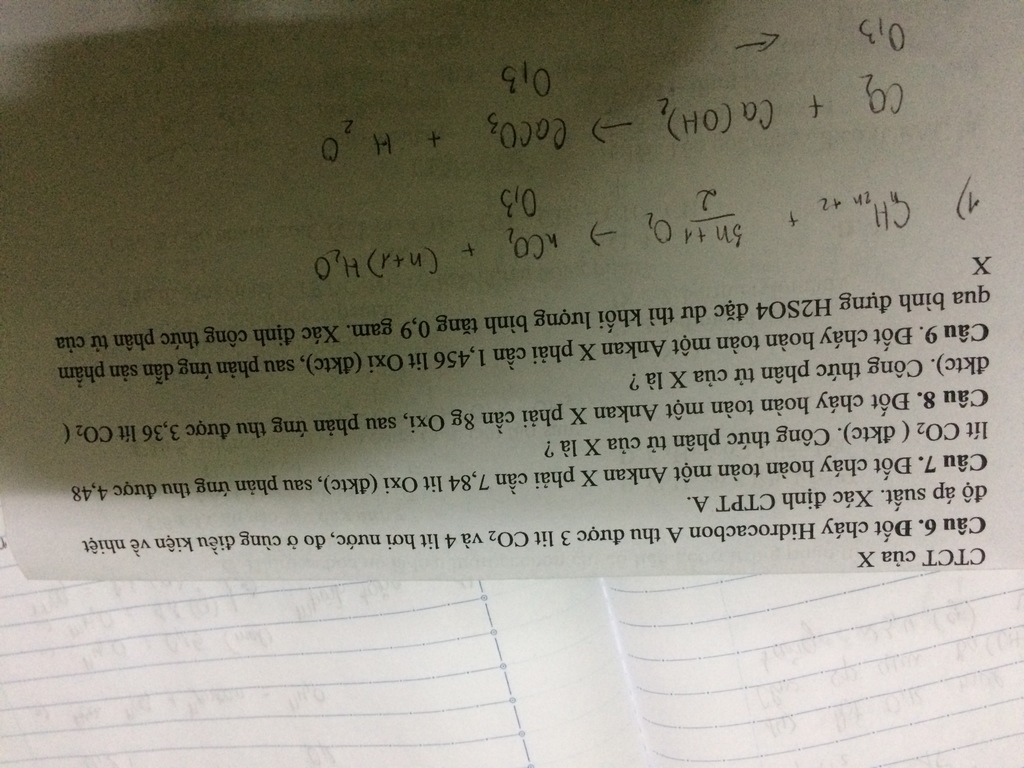 CTCT của X
Câu 6. Đốt cháy Hidrocacbon A thu được 3 lit CO2 và 4 lit hơi nước, đo ở cùng điều kiện về nhiệt
độ áp suất. Xác định CTPT A.
Câu 7. Đốt cháy hoàn toàn một Ankan X phải cần 7,84 lit Oxi (đktc), sau phản ứng thu được 4,48
lít CO2 ( đktc). Công thức phân tử của X là ?
Câu 8. Đốt cháy hoàn toàn một Ankan X phải cần 8g Oxi, sau phản ứng thu được 3,36 lít CO2 (
đktc). Công thức phân tử của X là ?
Câu 9. Đốt cháy hoàn toàn một Ankan X phải cần 1,456 lit Oxi (đktc), sau phản ứng dẫn sản phẩm
qua bình đựng H2SO4 đặc dư thì khối lượng bình tăng 0,9 gam. Xác định công thức phân tử của
X
1) CnH2n+2 + 3n+1/2 O2 → nCO2 + (n+1) H2O
0,3
CO2 + Ca(OH)2 → CaCO3 + H2O
0,3 ← 0,3